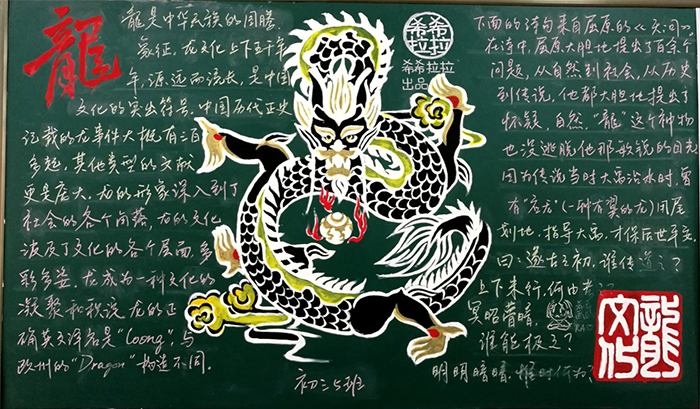 龍
龍是中华民族的图腾、
象征,龙文化上下五千
年,源远而流长,是中国
文化的突出符号,中国历代正史
记载的龙事件大概有三百
多起,其他类型的文献
更是庞大,龙的形象深入到了
社会的各个角落,龙的文化
波及了文化的各个层面,多
彩多姿,龙成为一种文化的
凝聚和积淀,龙的正
确英文译名是“Loong”,与
欧州的“Dragon”构造不同.
希希
拉拉
希希拉拉
出品
初三5班
下面的诗句来自屈原的《天问》
在诗中,屈原大胆地提出了百余个
问题,从自然到社会,从历史
到传说,他都大胆地提出了
怀疑,自然,“龍”这个神物
也没逃脱他那敏锐的目光
因为传说当时大禹治水时,曾
有“应龙”(一种有翼的龙)用尾
划地,指导大禹,才保后世平安
曰:遂古之初,谁传道之?
上下未行,何由考
冥昭瞢暗,
谁能极之?
明明暗暗,惟时何为?
龍文化